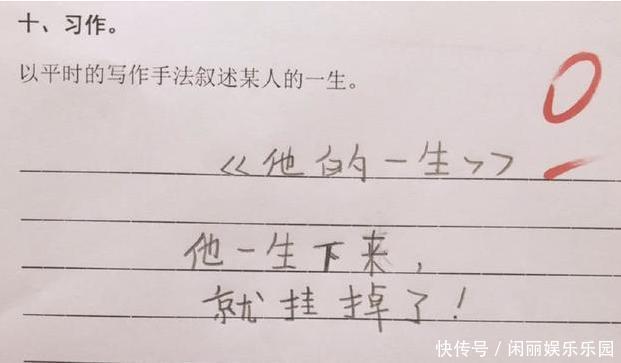 十、习作。
以平时的写作手法叙述某人的一生。
0
《他的一生》
他一生下来,
就挂掉了!
快传号/闲丽娱乐乐园